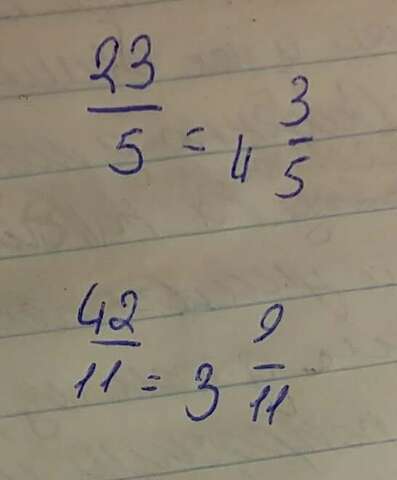 23/5 = 4 3/5
42/11 = 3 9/11